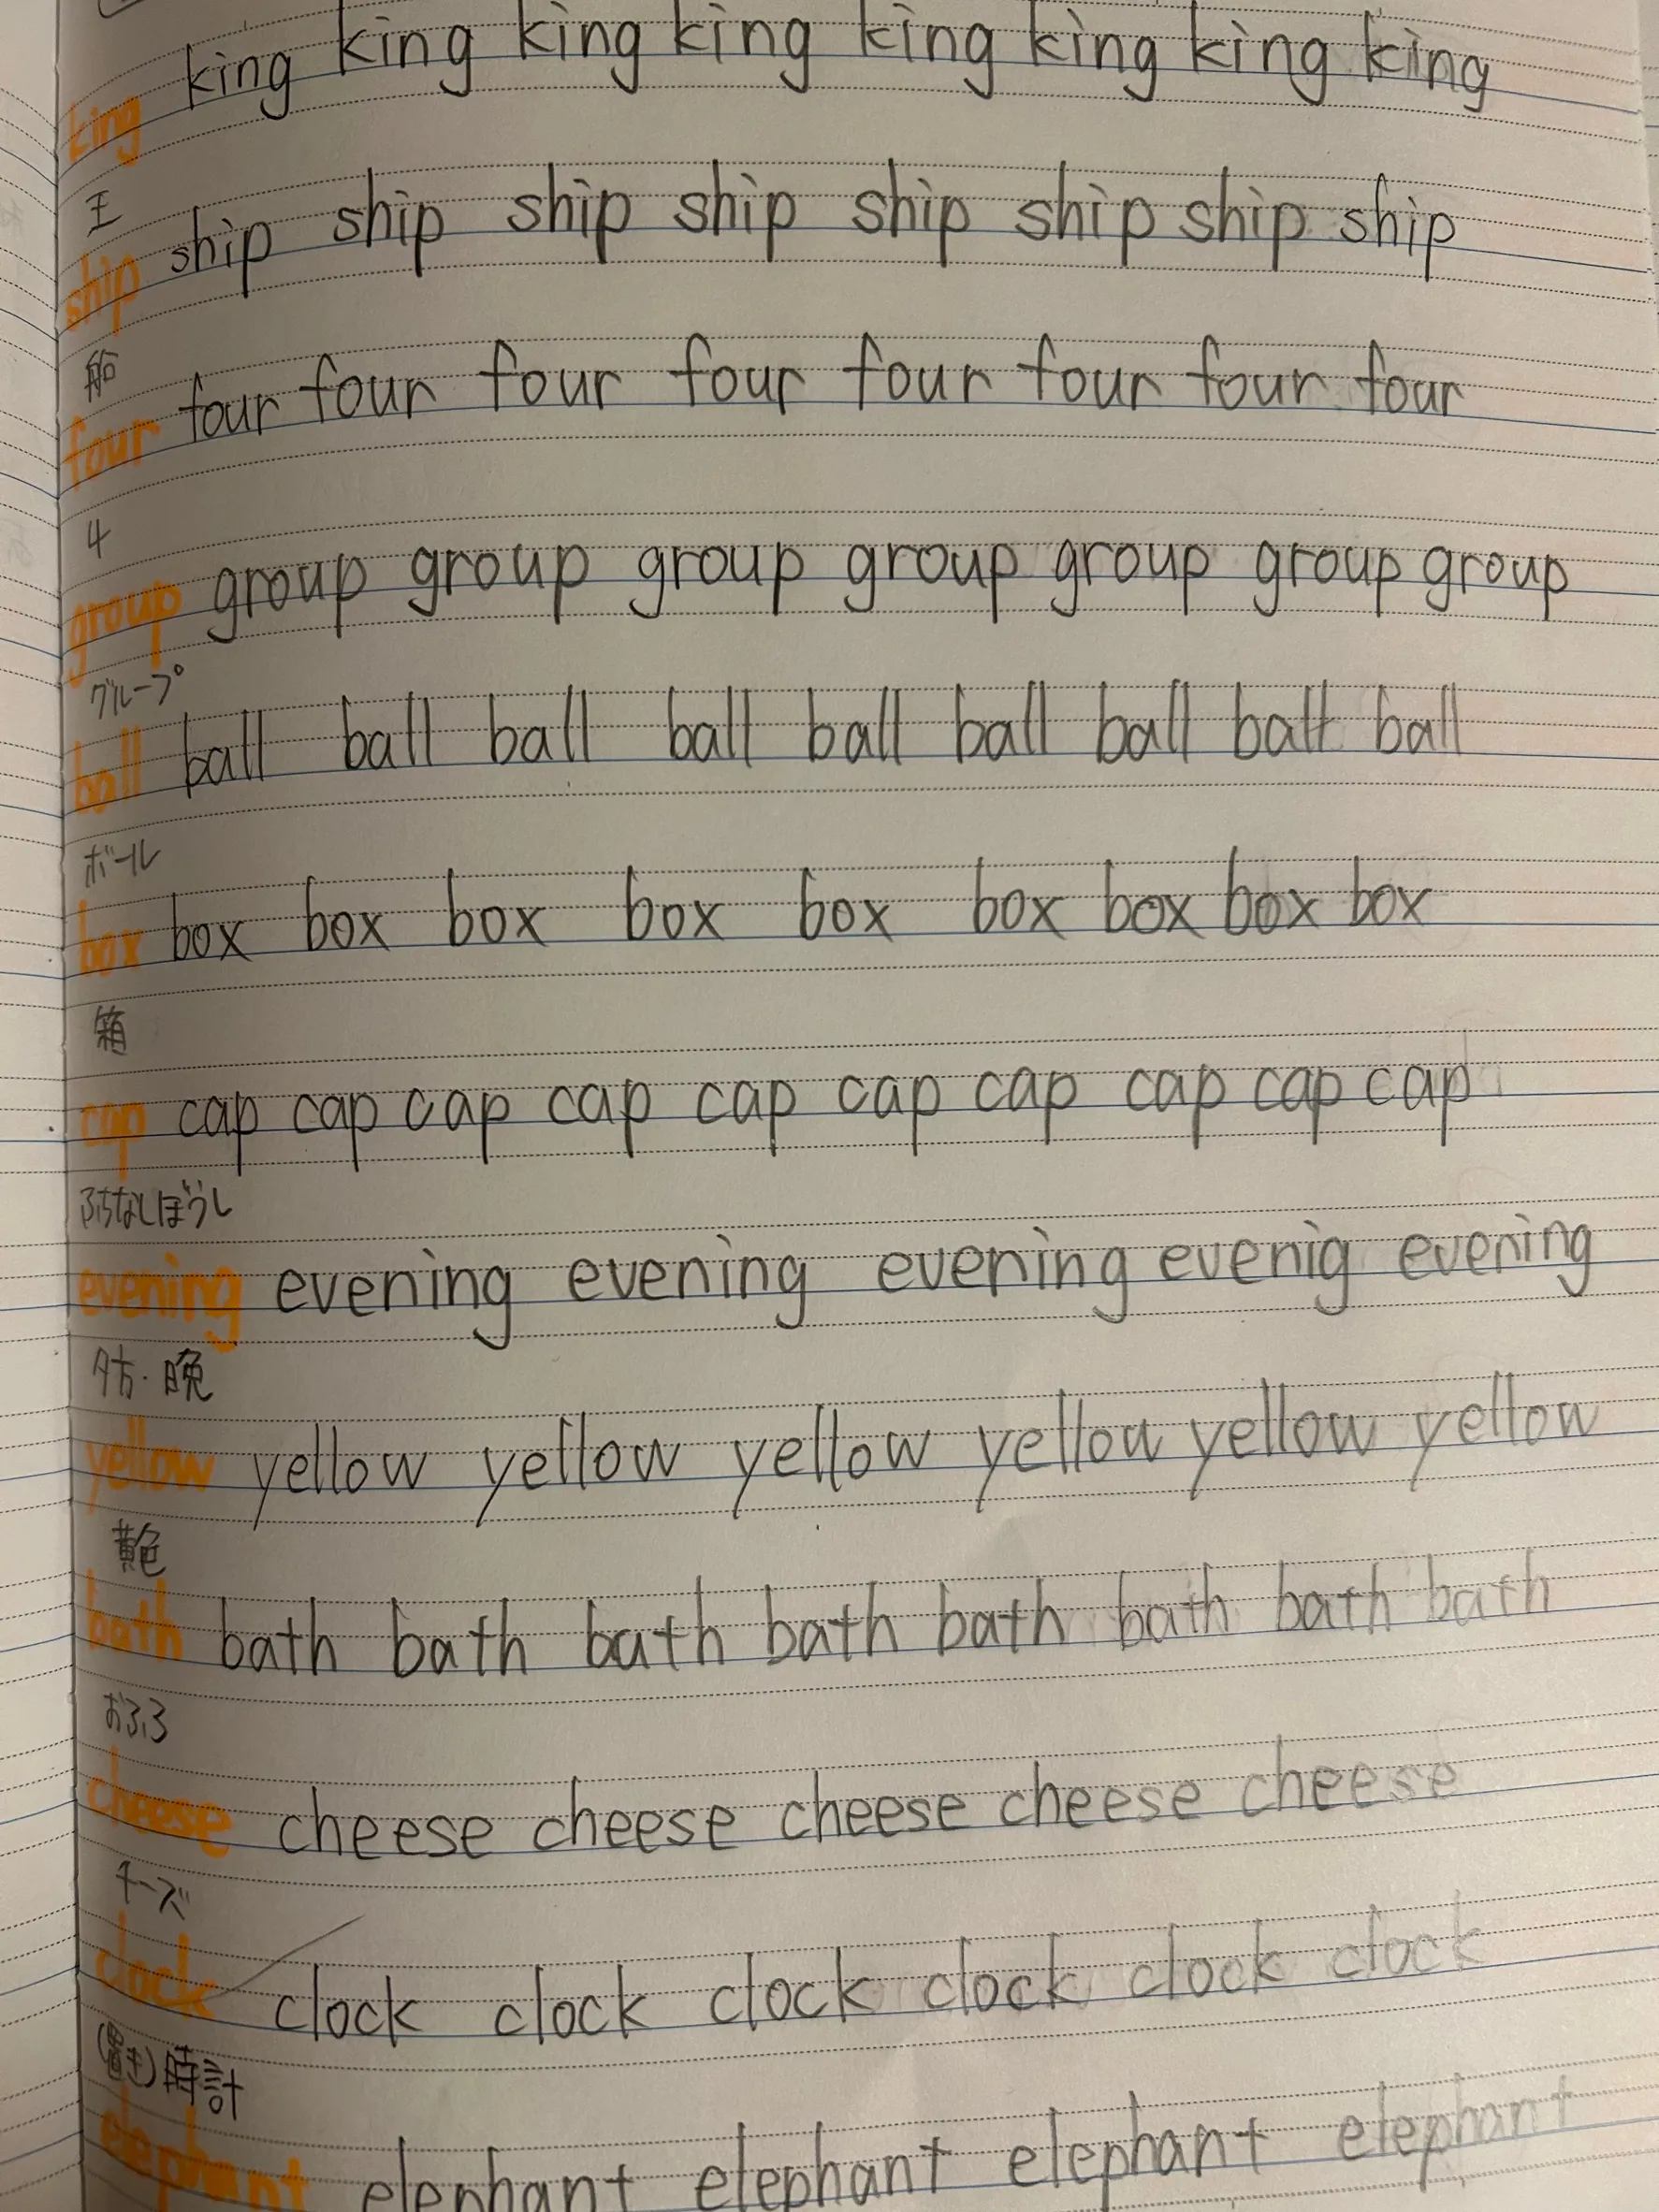 king king king king king king king king king
王
ship ship ship ship ship ship ship ship ship
船
four four four four four four four four four
4
group group group group group group group group
グループ
ball ball ball ball ball ball ball ball ball ball
ボール
box box box box box box box box box box
箱
cap cap cap cap cap cap cap cap cap cap cap
ふちなしぼうし
evening evening evening evening evenig evening
夕方・晩
yellow yellow yellow yellow yellow yellow yellow
黄色
bath bath bath bath bath bath bath bath bath
おふろ
cheese cheese cheese cheese cheese cheese
チーズ
clock clock clock clock clock clock clock
(置き)時計
elephant elephant elephant elephant elephant